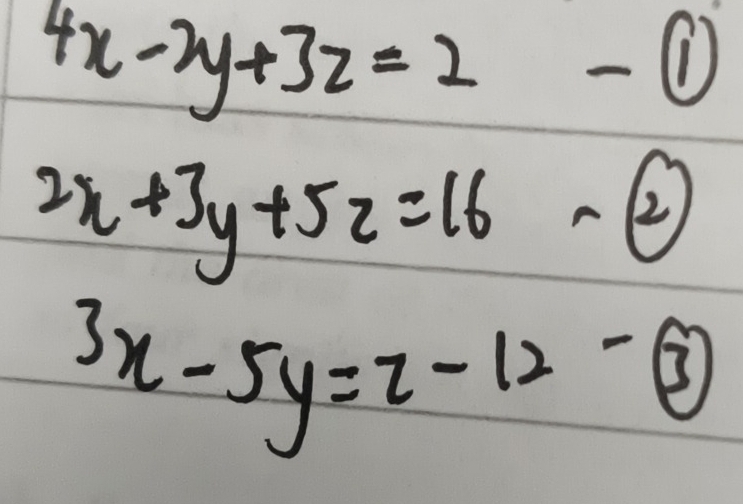 4x - 2y + 3z = 2 - ①
2x + 3y + 5z = 16 ~ ②
3x - 5y = z - 12 - ③